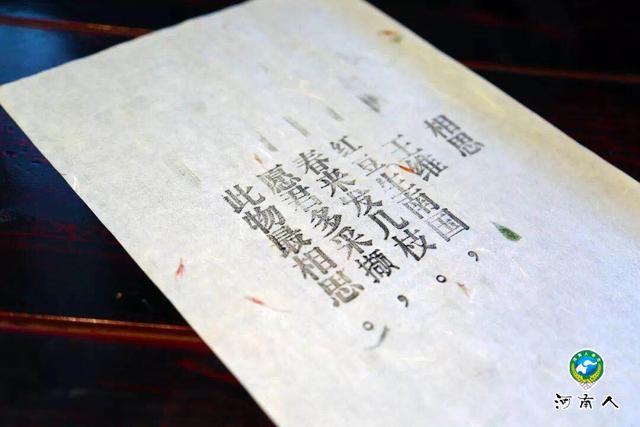 相思
王维
红豆生南国，
春来发几枝。
愿君多采撷，
此物最相思。
河南人